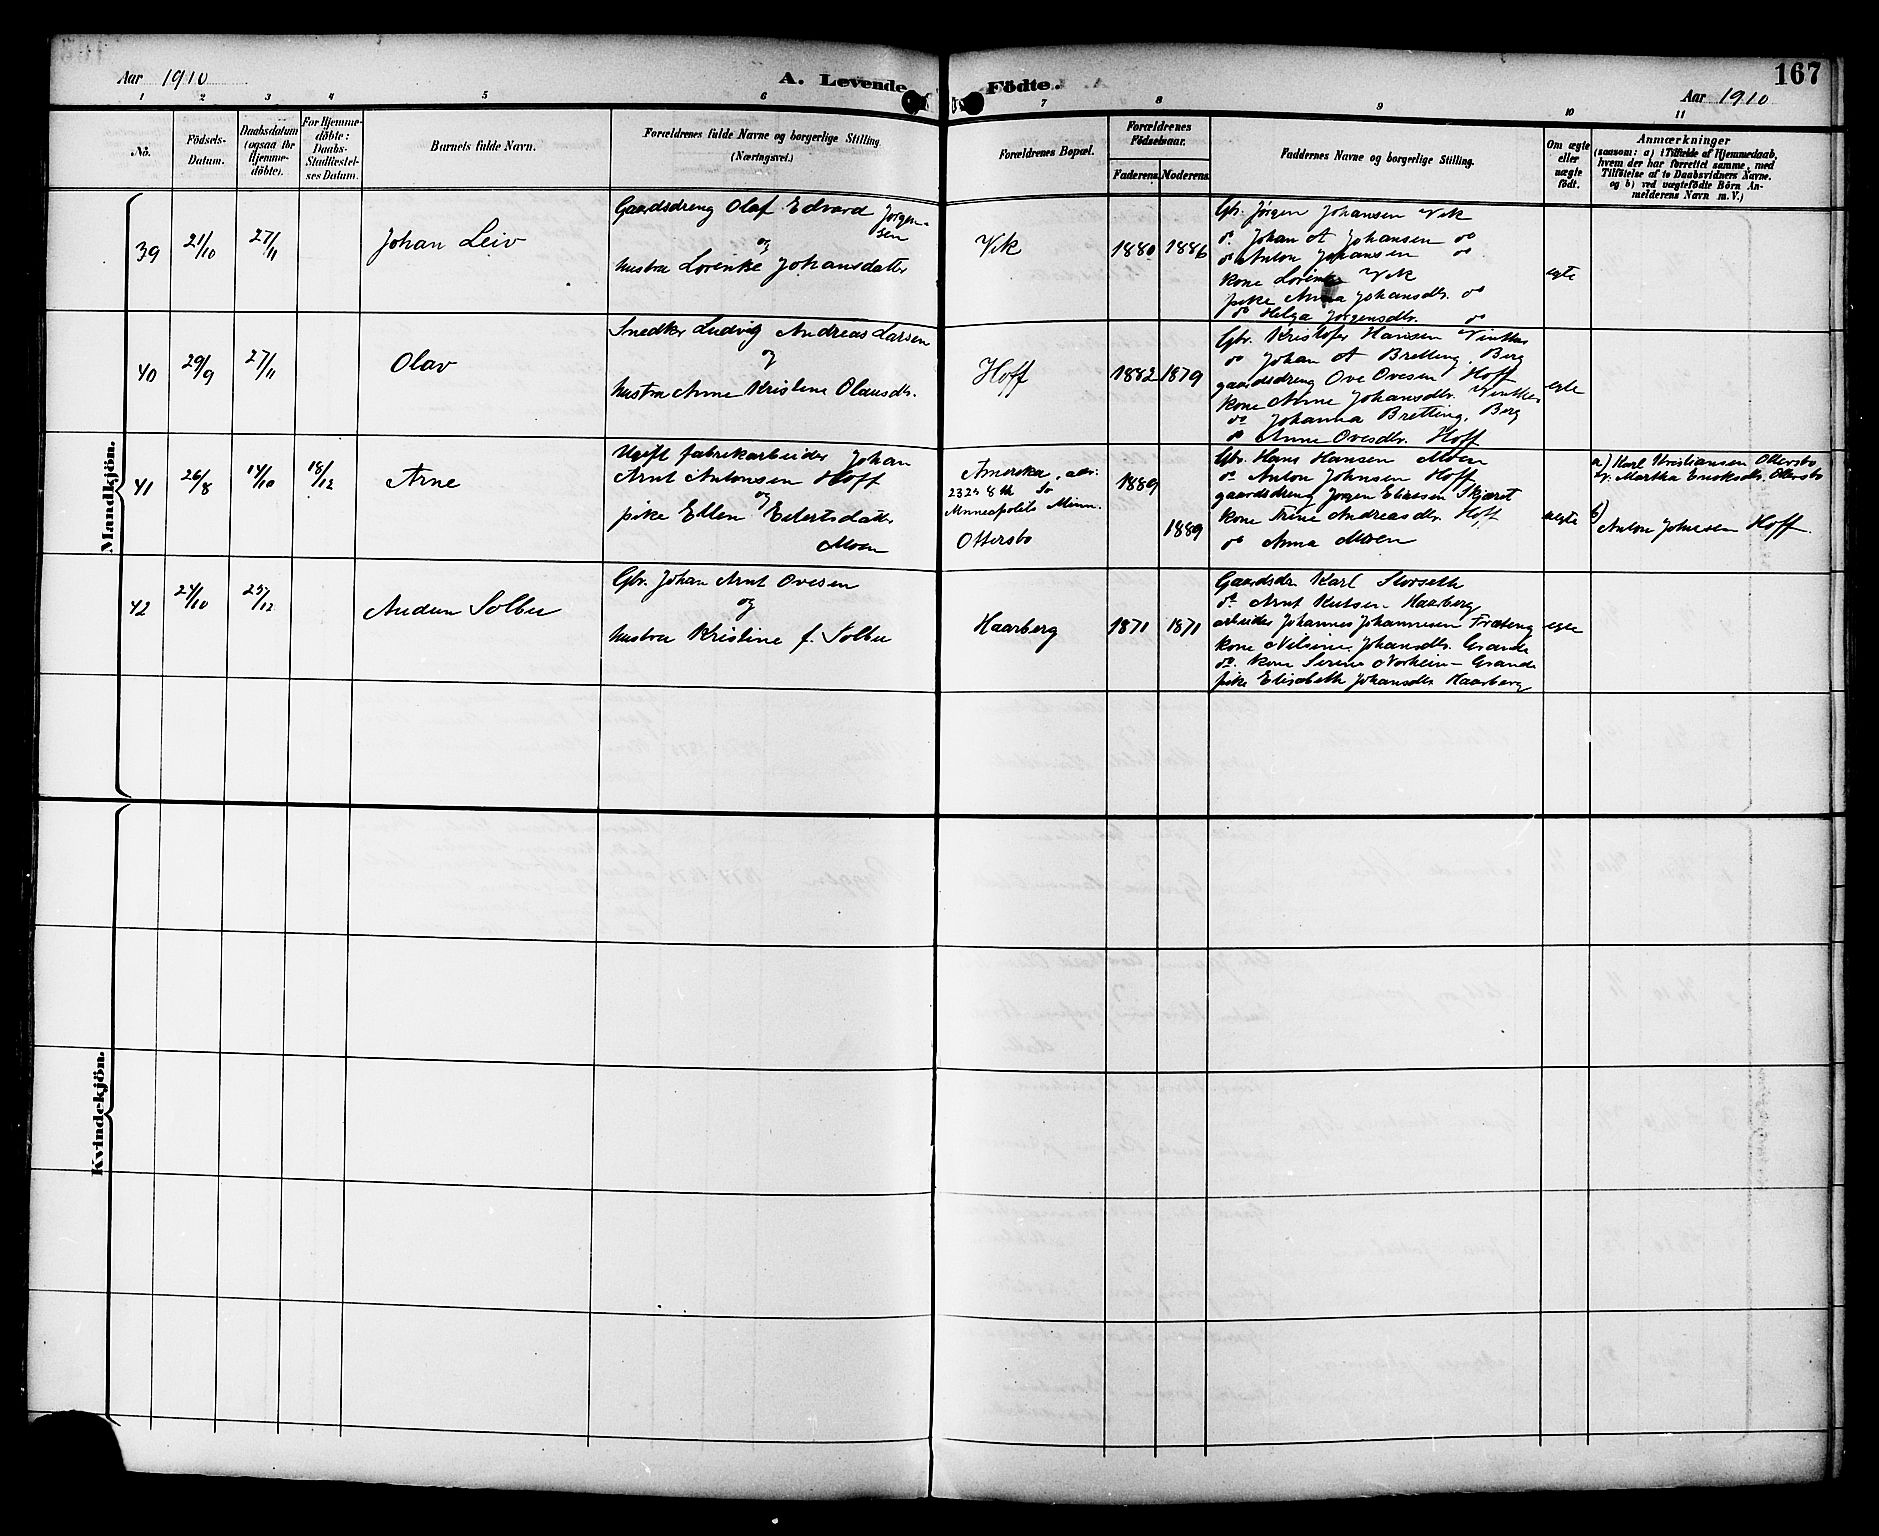 167
Aar 1910
A. Levende Födte.
Aar 1910
1 2 3 4 5 6 7 8 9 10 11
No.
Födsels-
Datum.
Daabsdatum
(ogsaa for
Hjemme-
döbte).
For Hjemme-
döbte:
Daabs-
Stadfæstel-
ses Datum.
Barnets fulde Navn.
Forældrenes fulde Navne og borgerlige Stilling
(Næringsvei.)
Forældrenes Bopæl.
Forældrenes
Födselsaar.
Faderens. Moderens.
Faddernes Navne og borgerlige Stilling.
Om ægte
eller
uægte
födt.
Anmærkninger
(saasom: a) i Tilfælde af Hjemmedaab,
hvem der har forrettet samme, med
Tilföielse af to Daabsvidners Navne.
og b) ved uægtefödte Börn An-
melderens Navn m. V.)
Mandkjön.
39
21/10
27/11
Johan Leiv
Gaardsdreng Olaf Edvard Jørgen-
sen
og
hustru Lorense Johansdatter
Vik
1880
1886
Gbr. Jørgen Johansen Vik
do Johan A Johansen do
do Anton Johansen do
kone Lorense Vik
pike Anna Johansdtr. do
do Helga Jørgensdtr. do
egte
40
29/9
27/11
Olav
Snedker Ludvig Andreas Larsen
og
hustru Anne Kristine Olausdtr.
Hoff
1882
1879
Gbr. Kristofer Hansen
do Johan A Bretting, Berg
gaardsdreng Ove Ovesen Hoff
kone Anne Johansdtr.
do Johanna Bretting, Berg
do Anne Ovesdtr. Hoff
egte
41
26/8
14/10
18/12
Arne
Ugift fabrikarbeider Johan
Arnt Antonsen Hoff
og
pike Ellen Eilertsdatter
Moen
Amerika, adr:
2323 8th So
Minneapolis Minn.
Ottersbo
1889
1889
Gbr. Hans Hansen Moen
do Anton Johnsen Hoff
gaardsdreng Jørgen Eliasen Skjæret
kone Trine Andreasdtr. Hoff
do Anna Moen
uegte
a) Karl Kristiansen Ottersbo
og Martha Eriksdtr. Ottersbo
b) Anton Johnsen Hoff.
42
24/10
25/12
Audun Solbu
Gbr. Johan Arnt Ovesen
og
hustru Kristine f. Solbu
Haarberg
1871
1871
Gaardsdr. Karl Storseth
do Arnt Knutsen Haarberg
arbeider Johannes Johannesen
kone Nilsine Johansdtr. Grande
do. kone Serine Norheim - Grande
pike Elisabeth Johansdtr Haarberg
egte
Kvindekjön.